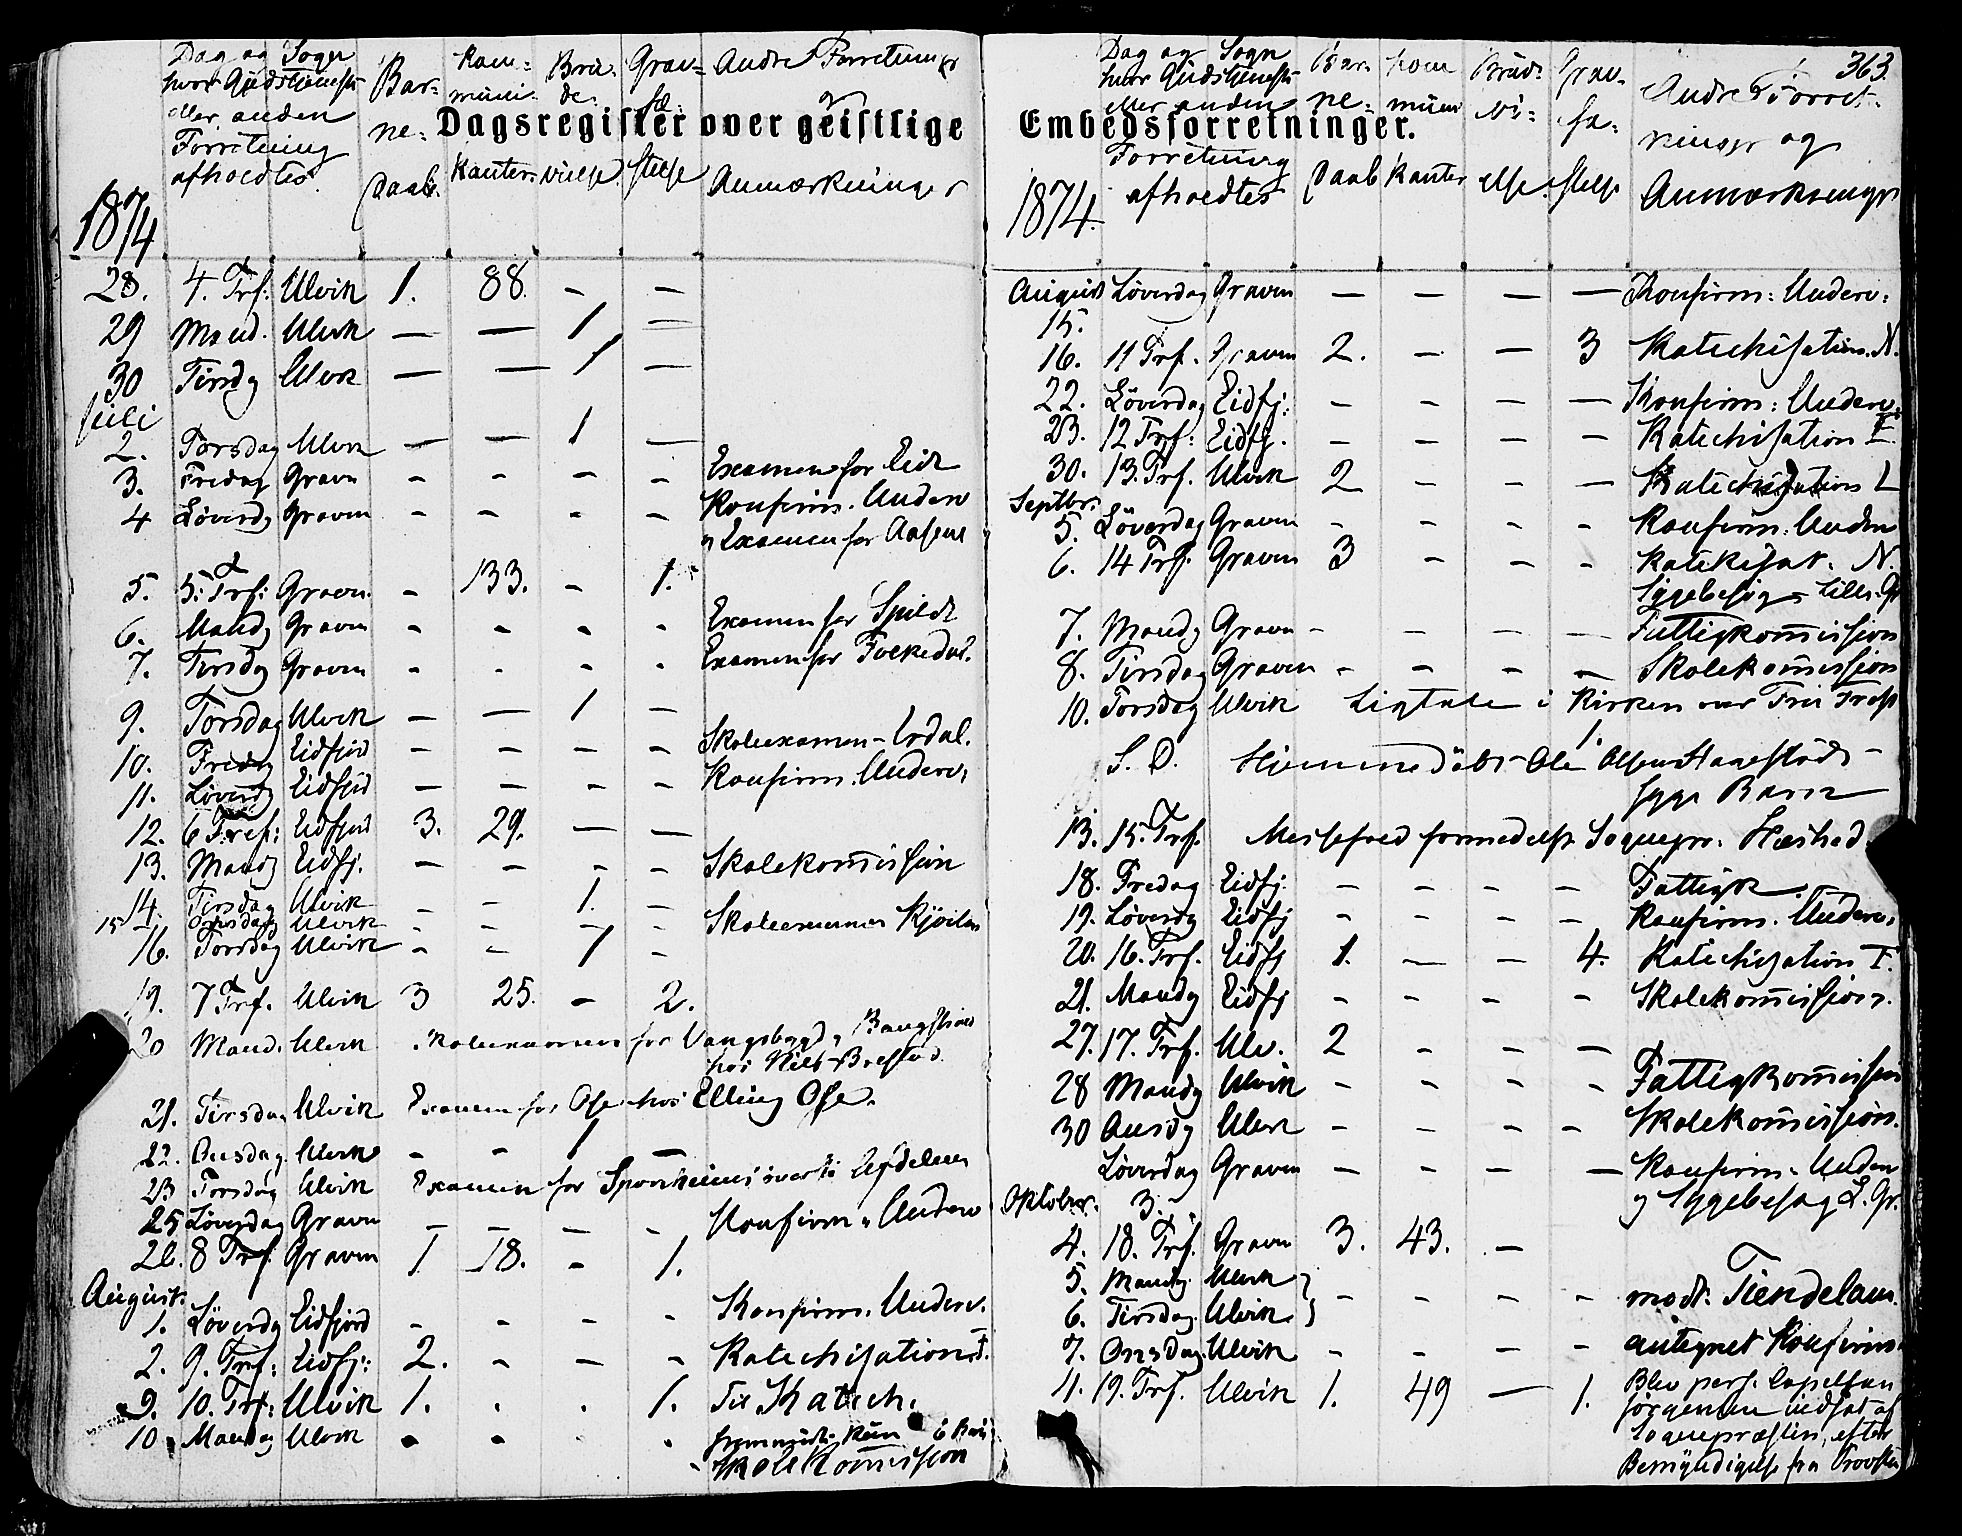 Dagsregister over geistlige
Dag og Sogn
hvor Gudstjeneste
eller anden
Forretning
afholdtes.
Bar-
ne-
Daab.
Kom-
muni-
kanter.
Bru-
de-
vielse.
Grav-
fæ-
stelse
Andre Forretninger
og
Anmærkninger
1874
28. 4. Trf: Ulvik 1. 88. - -
29 Mand. Ulvik — — 1 —
30 Tirsdg Ulvik — — 1 —
Juli
2. Torsdag Ulvik — — 1 —
3. Fredag Graven - - - - Examen for Eide
4 Løverdg Graven - - - - Konfirm. Underv
og Examen for Aasene
5. 5. Trf: Graven. - 133. - 1.
6. Mandg Graven - - - - Examen for Spildt
7. Tirsdg Graven - - - - Examen for Folkedal.
9. Torsdag Ulvik — — 1 —
10. Fredag Eidfjord - - - - Skoleexamen - Erdal.
11. Løverdg Eidfjord - - - - Konfirm. Underv.
12. 6 Tref: Eidfjord 3. 29. — —
13. Mandg Eidfj. - - - - Skolekommission
14. Tirsdag Ulvik - - 1. -
15 Onsdag Ulvik - - - - Skoleexamen
16. Torsdag Ulvik - - 1 -
19. 7 Trf. Ulvik 3 25. - 2.
20 Mand. Ulvik Skoleexamen for Vangsbygd
hos Nils
21. Tirsdag Ulvik Examen for Ose hos Elling Ose.
22. Onsdag. Ulvik - - 1 —
23 Torsdag Ulvik Examen for Afdelin
25 Løverdag Graven - - - - Konfirm. Underv
26. 8 Trf. Graven 1 18. - 1.
August.
1. Løverdg Eidfjord - - - - Konfirm. Underv.
2. 9. Trf: Eidfj: 2. - - - Katechisation
9. 10. Trf: Ulvik 1. . . 1. Til Katech.
10 Mandag Ulvik - . . . fremmødte kun 6 Børn
Skolekommission
363.
Embedsforretninger.
Dag og Sogn
hvor Gudstjeneste
eller anden
Forretning
afholdtes
Bar-
ne-
Daab
Kom
muni
kanter
Brud-
vi-
else.
Grav-
fæ-
stelse
Andre Forret-
ninger og
Anmærkninger
1874.
August Løverdag Graven — — — — Konfirm: Underv:
15.
16. 11 Trf. Graven 2. — — 3 Katechisation. N.
22. Løverdag Eidfj: - - - — Konfirm: Underv.
23. 12 Trf: Eidfj. - - - — Katechisation I.
30. 13. Trf. Ulvik 2 - - — Katechisation L
Septbr.
5. Løverdag Graven - - - - Konfirm: Underv
6. 14 Trf. Graven 3 - - - Katekisat. N.
Sygebesøg - Lille-Gr
7. Mandg Graven - - - — Fattigkommission
8. Tirsdag Graven - - - — Skolekommission
10. Torsdag Ulvik Ligtale i Kirken over
1.
S. D. Hjemmedøbt Ole Olsen
syge Barn
13. 15. Trf. Messefald formedelst Sognepr:
18. Fredag Eidfj. - - - - Fattigk.
19. Løverdg Eidfj - - - - Konfirm. Underv.
20. 16. Trf. Eidfj 1. — — 4. Katechisation I.
21. Mandg Eidfj - - - - Skolekommission.
27. 17. Trf. Ulv. 2 - - —
28 Mandg Ulvik - - - - Fattigkommission
30 Onsdg Ulvik - - - - Skolekommission.
Løverdag Graven - - - — Konfirm. Underv
Oktober. 3. og Sygebesøg L. Gr.
4. 18. Trf. Graven 3. 43. —
5. Mandg Ulvik }
6. Tirsdag. Ulvik. } - - - - modt. Tiendelam.
7. Onsdag. Ulvik - - - - antegnet Konfirm.
11. 19. Trf. Ulvik 1. 49 — 1. Blev pers. Capellan
Jørgensen indsat af
Sognepræsten, efter
Bemyndigelse fra Provsten